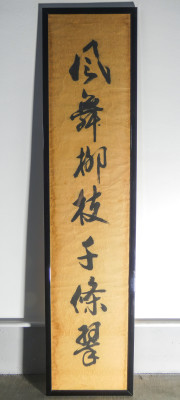 风舞柳枝千條翠